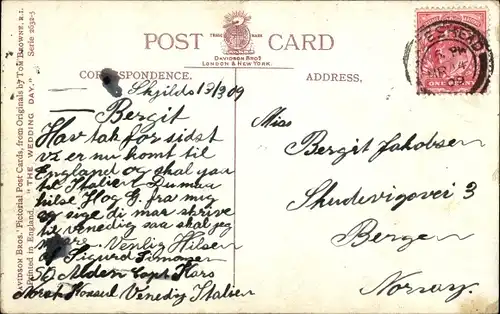 POST CARD
TRADE MARK
DAVIDSON BROS
LONDON & NEW YORK.
CORRESPONDENCE.
ADDRESS,
DAVIDSON BROS.' Pictorial Post Cards, from Originals by TOM BROWNE, R.I.
Printed in England. "THE WEDDING DAY." Serie 2632-5
ONE PENNY
MR 14
09
Shjilds 13/3 09
Bergit
Hav tak for sidst
vi er nu komt til
England og skal
til Italien Du maa
hilse fra mig
og sige di maa skrive
til Venedig saa skal jeg
Venlig Hilsen
Sigurd
SD Capt
Norsk Konsul Venedig Italien
Miss
Bergit Jakobsen
Skudevigsvei 3
Bergen
Norway.